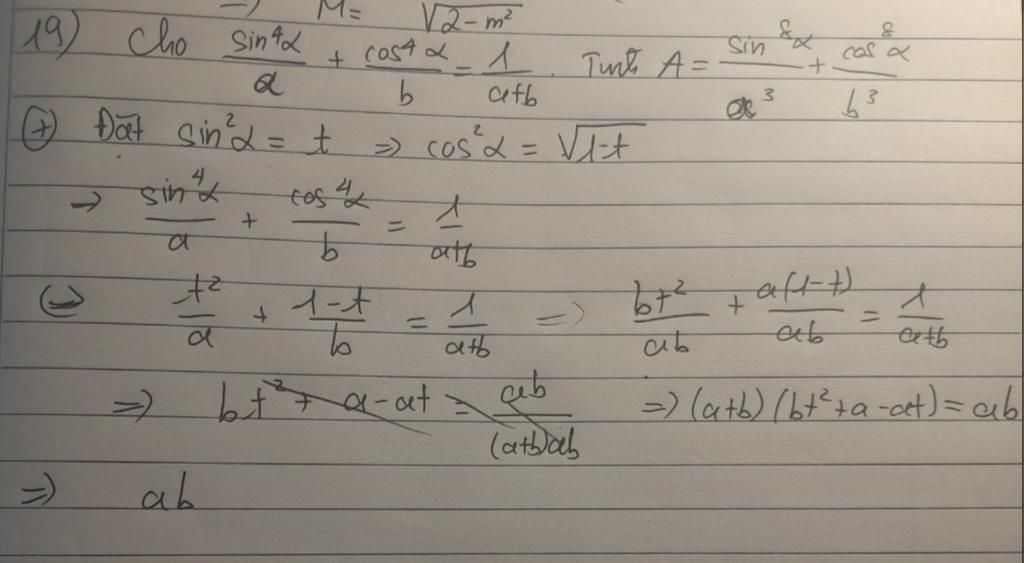 =) M = √(2-m²)
19) Cho sin⁴α/α + cos⁴α/b = 1/(a+b). Tính A = sin⁸α/a³ + cos⁸α/b³
(+) Đặt sin²α = t => cos²α = √(1-t)
→ sin⁴α/a + cos⁴α/b = 1/(a+b)
(=) t²/a + (1-t)/b = 1/(a+b) => bt²/ab + a(1-t)/ab = 1/(a+b)
=) bt² + a - at = ab/(a+b)ab =) (a+b)(bt²+a-at) = ab
=) ab